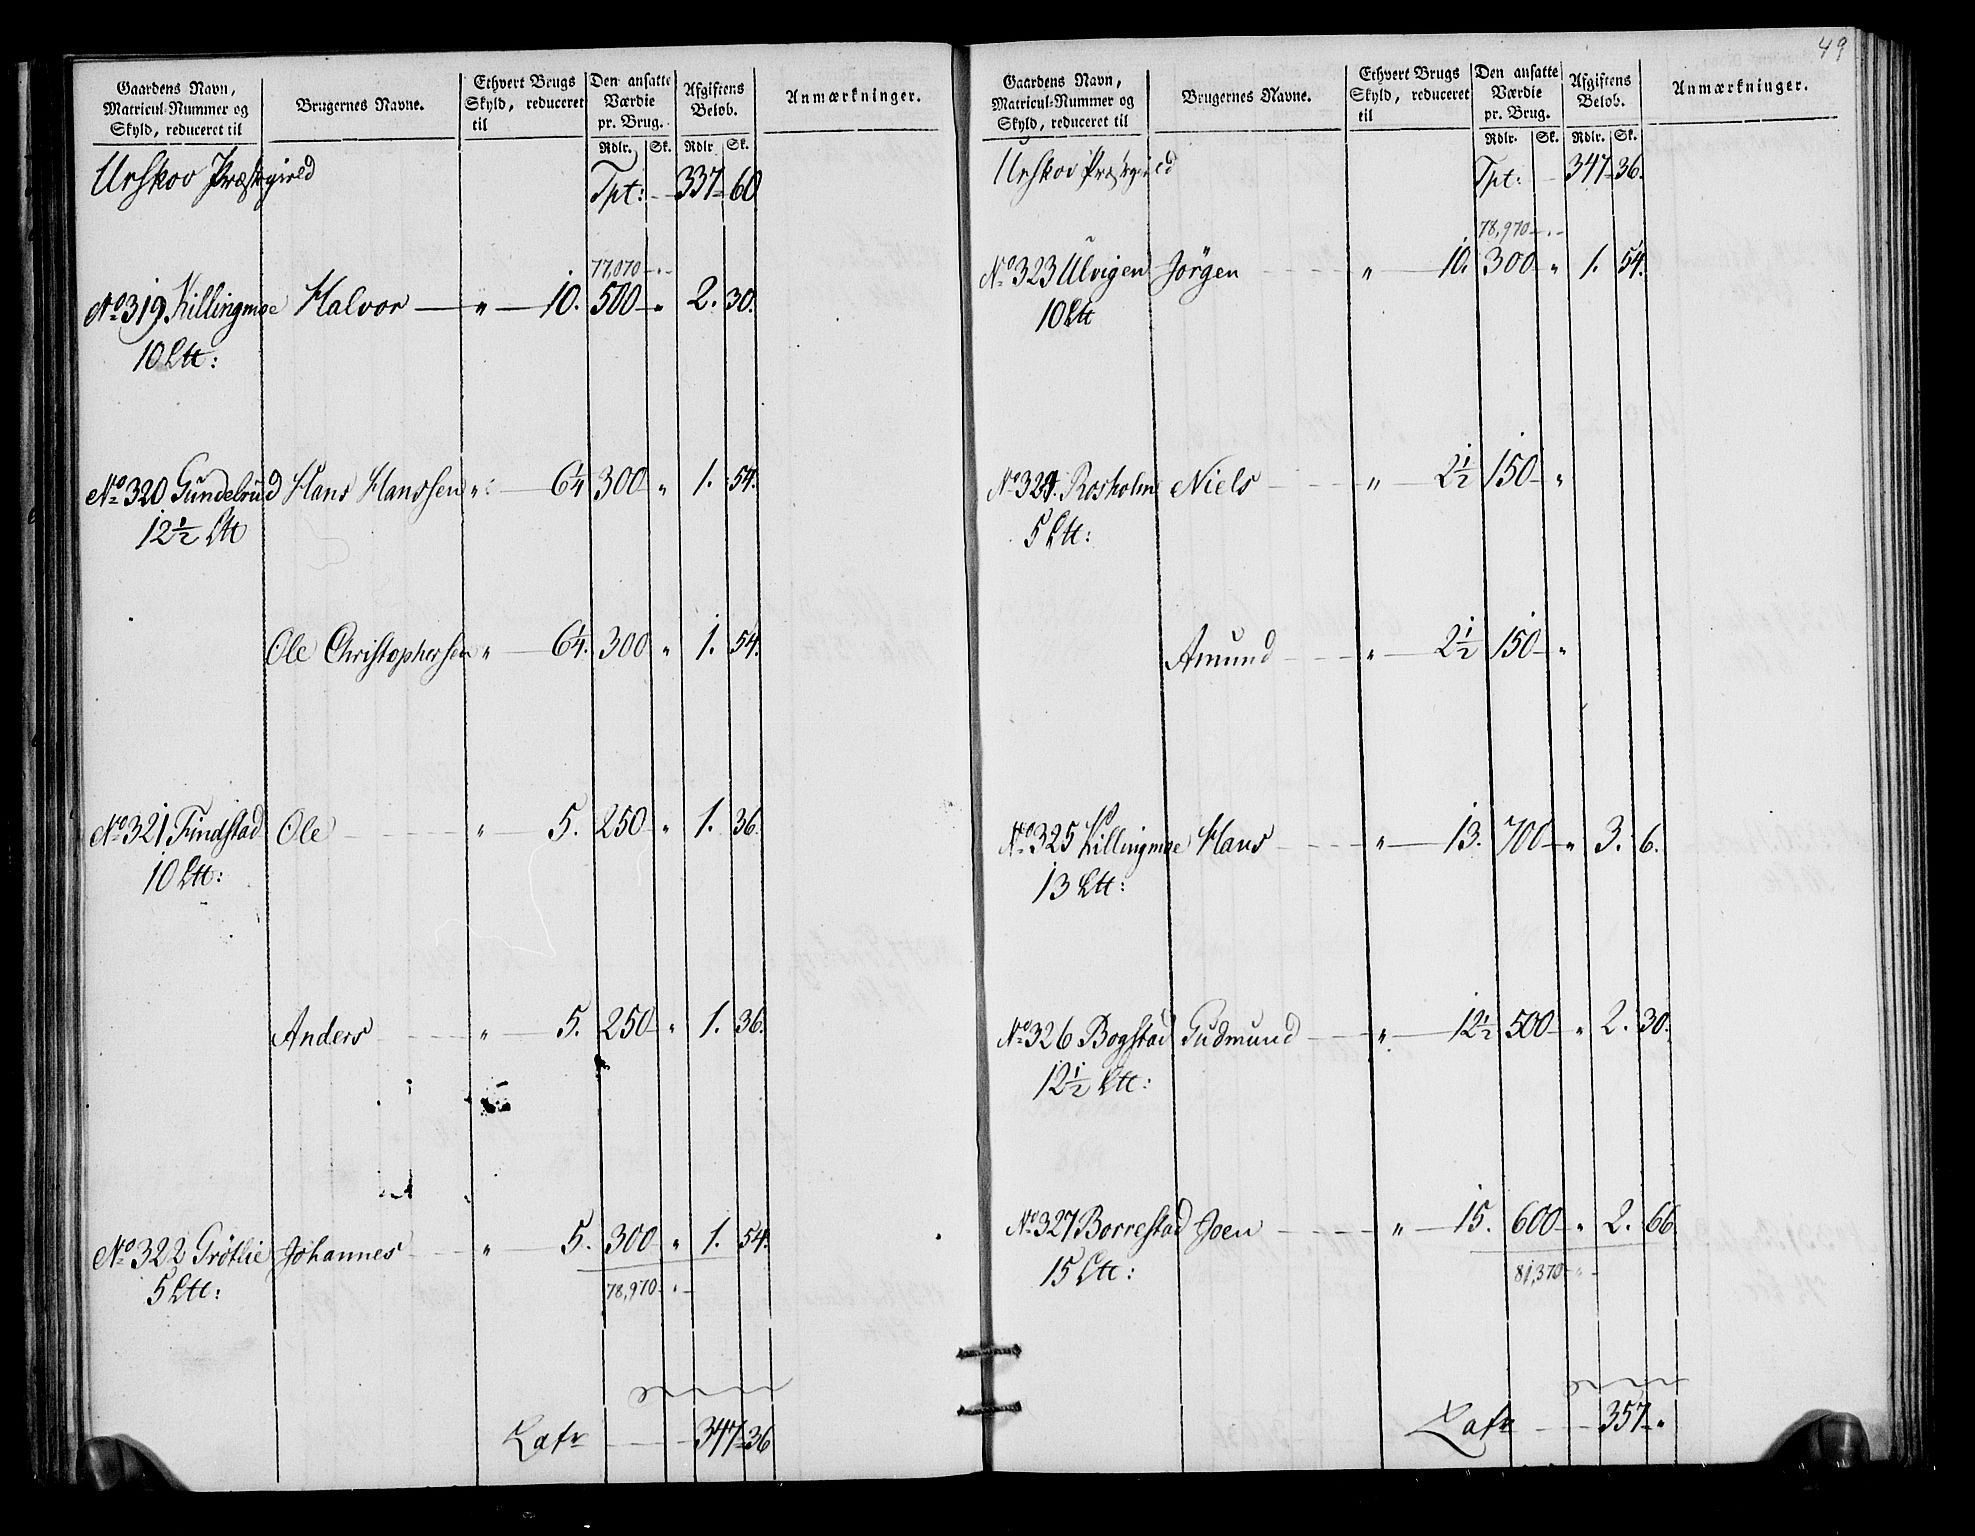 Gaardens Navn, Matricul-Nummer og Skyld, reduceret til | Brugernes Navne. | Ethvert Brugs Skyld, reduceret til | Den ansatte Værdie pr. Brug. Rdlr. Sk. | Afgiftens Beløb. Rdlr Sk. | Anmærkninger.
Urskov Præstegield Tpt: 337 60
77,070 - " -
No 319 Killingmoe Halvor " 10. 500 " 2. 30.
10 Ltt:
No 320 Gundelrud Hans Hanssen " 6¼ 300 " 1. 54.
12½ Ltt
Ole Christophersen " 6¼. 300 " 1. 54.
No 321 Findstad Ole " 5. 250 " 1. 36.
10 Ltt:
Anders " 5. 250 " 1. 36.
No 322 Grøtlie Johannes " 5. 300 " 1. 54.
5 Ltt:
78,970 - " -
Latr 347 36
49
Gaardens Navn, Matricul-Nummer og Skyld, reduceret til | Brugernes Navne. | Ethvert Brugs Skyld, reduceret til | Den ansatte Værdie pr. Brug. Rdlr. Sk. | Afgiftens Beløb. Rdlr. Sk. | Anmærkninger.
Urskov Præstegield Tpt: 347 36.
78,970 - " -
No 323 Ulvigen Jörgen " 10. 300 " 1. 54.
10 Ltt
No 324. Rosholm Niels " 2½ 150 "
5 Ltt:
Amund " 2½ 150 "
No 325 Killingmoe Hans " 13. 700 " 3. 6.
13 Ltt:
No 326 Bogstad Gudmund " 12½ 500 " 2. 30.
12½ Ltt:
No 327 Borrestad Joen " 15. 600 " 2. 66.
15 Ltt:
81,370 - " -
Latr 357 "